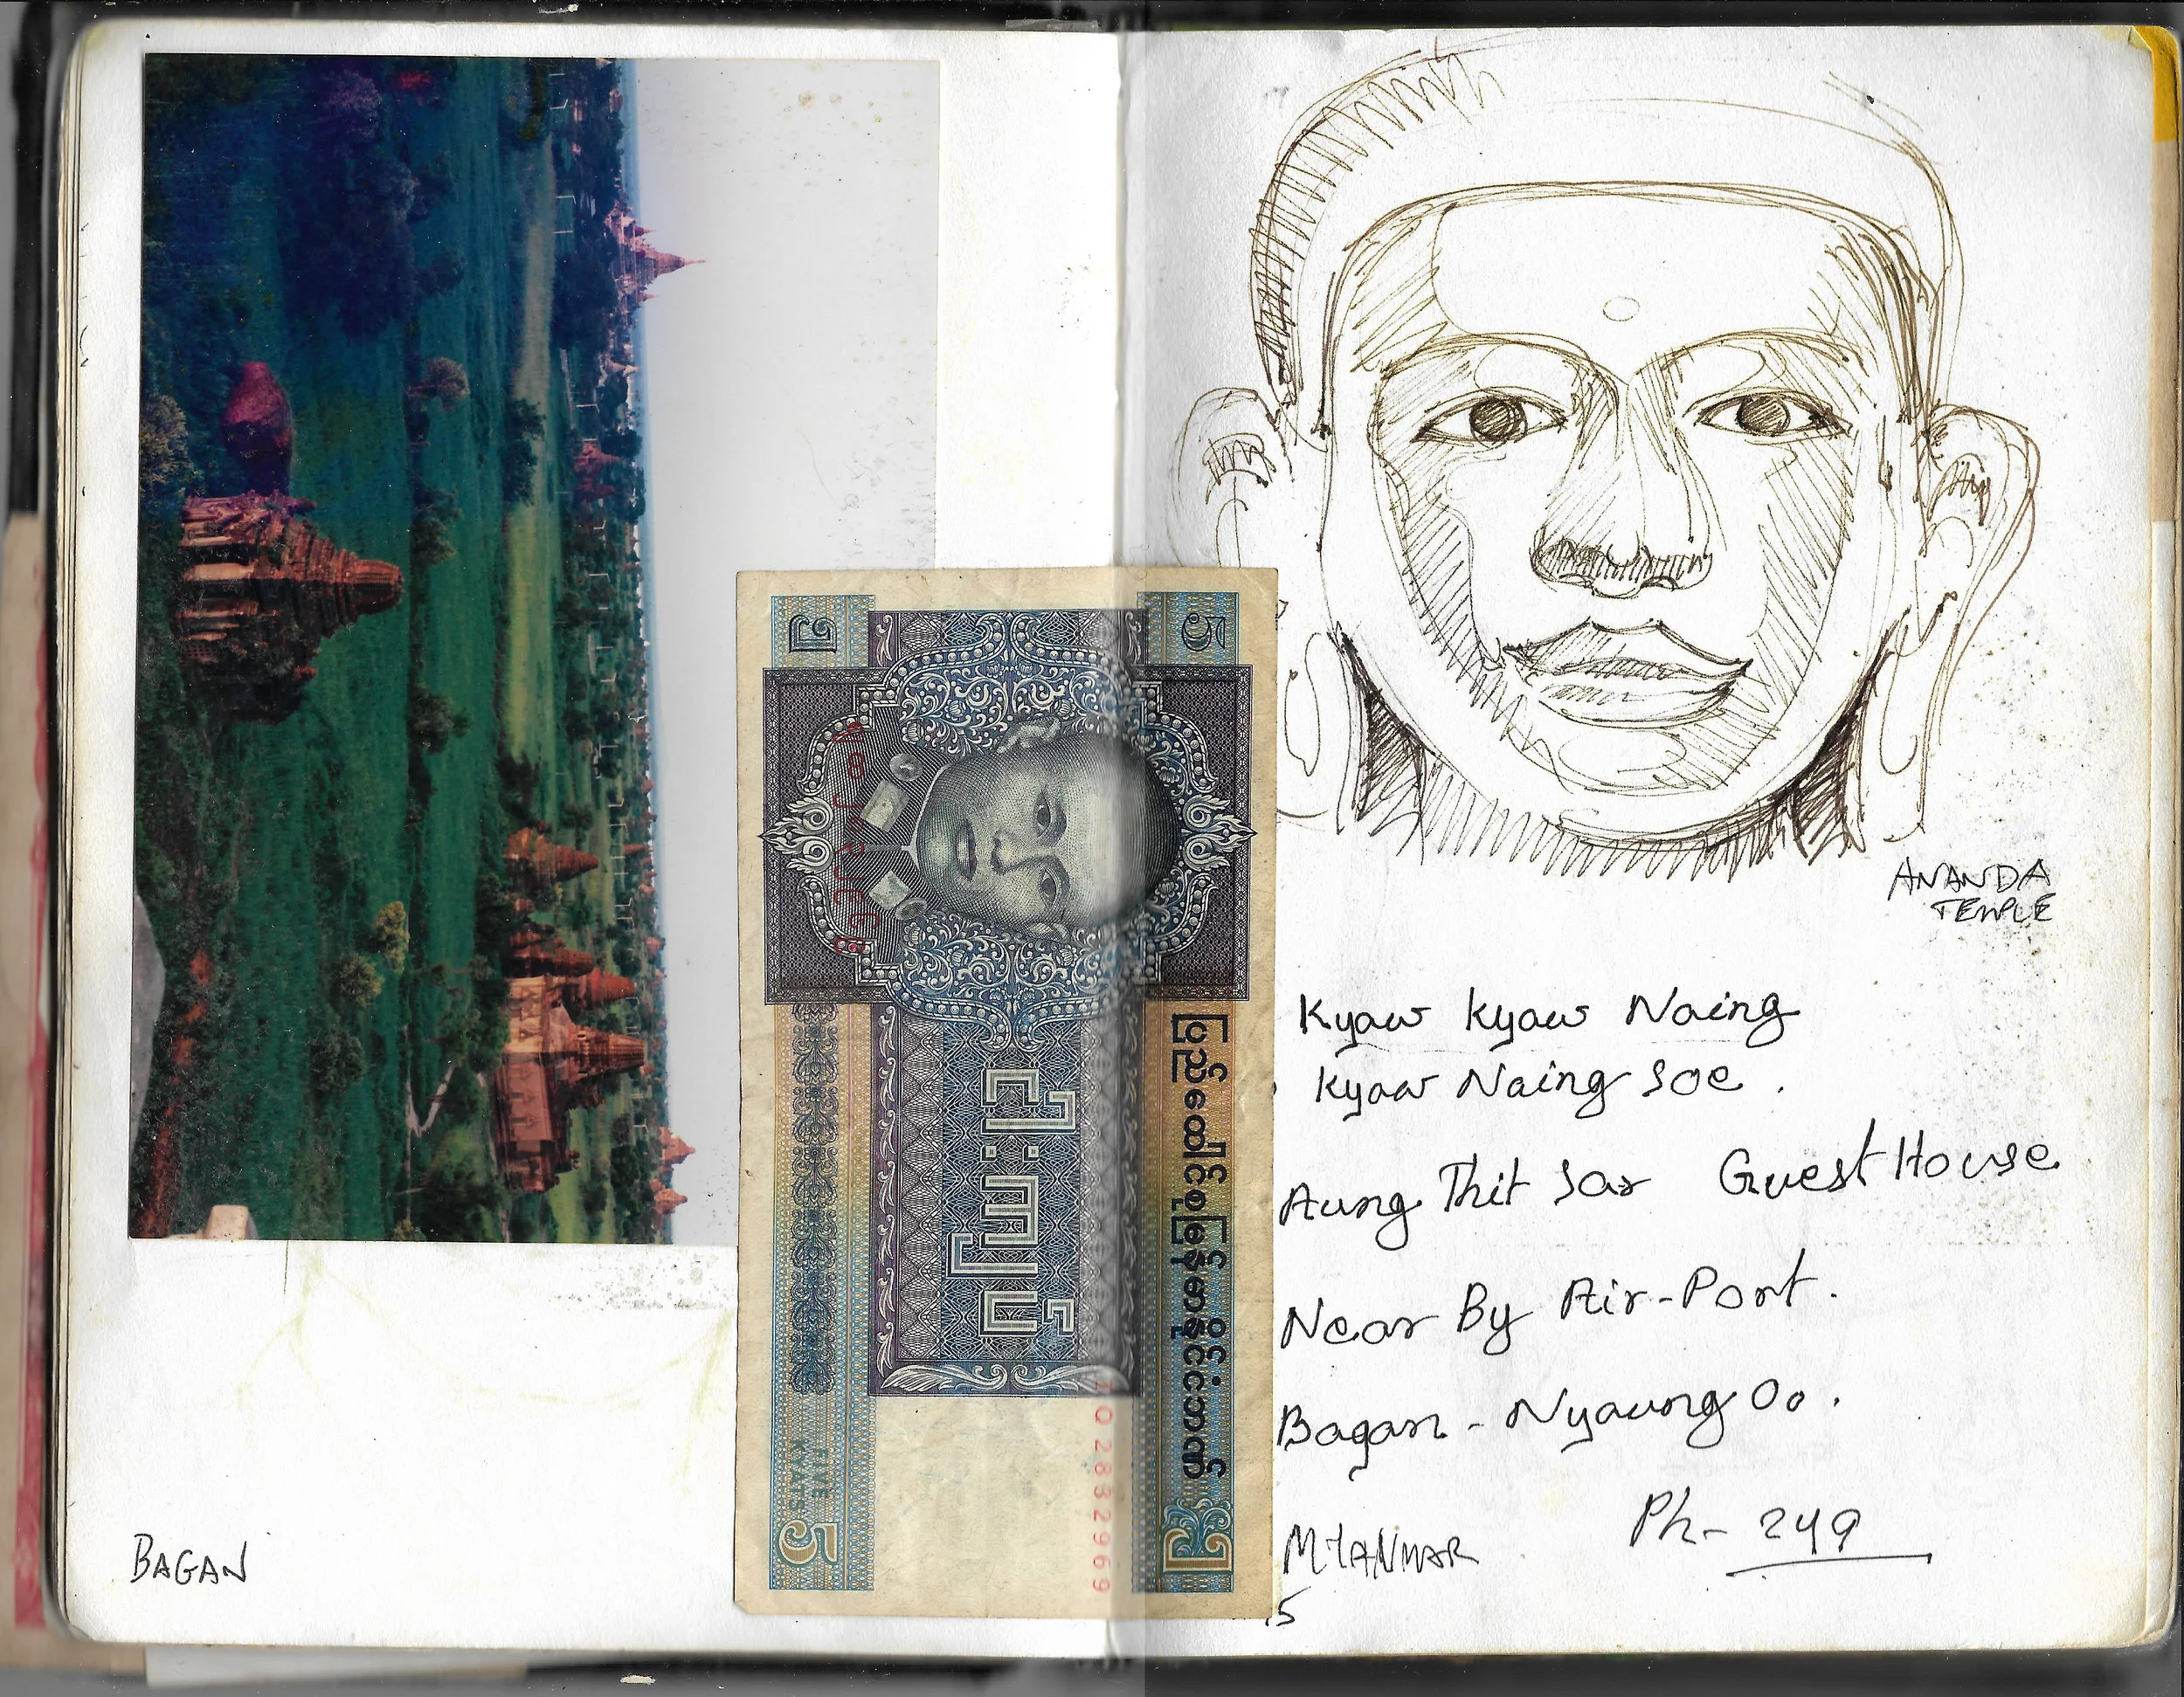 BAGAN
၅
5
ပြည်ထောင်စုမြန်မာနိုင်ငံဘဏ်
ငါးကျပ်
2832969
FIVE
KYATS
5
၅
ANANDA
TEMPLE
Kyaw Kyaw Naing
Kyaw Naing Soe .
Aung Thit Sar Guest House
Near By Air-Port .
Bagan - Nyaung Oo .
Ph- 249
MYANMAR